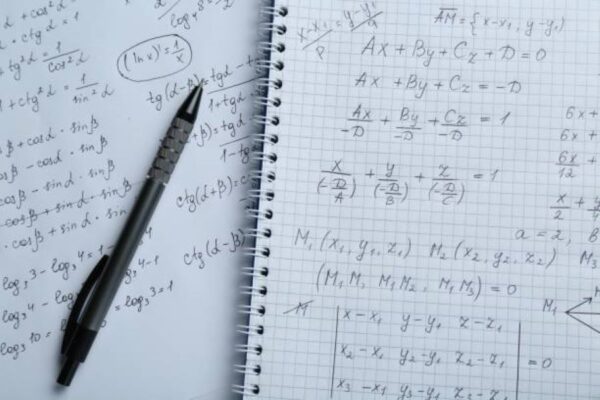 α + cos²α =
· ctg α = 1
tg²α = 1/cos²α
1 + ctg²α = 1/sin²α
log₄ 8
(ln x)' = 1/x
tg(α-β) = tgα - t
1 + tgα
+β) = tgα
1 - tg
β + cosα · sinβ
cosβ - cosα · sinβ
cosβ - sinα · sinβ
cosβ + sinα · sinβ
cosβ + sinα · sinβ
ctg(α+β) = c
ctg(α-β)
log₃ 3 - log₃ 4 = 1 - log₃ 4
log₃ 4 - log₃ 4 - 1
log₃ 10 = log₃ 3 = 1
x-x₁/p = y-y₁
AM = {x-x₁, y-y₁)
Ax + By + Cz + D = 0
Ax + By + Cz = -D
Ax/-D + By/-D + Cz/-D = 1
x/(-D/A) + y/(-D/B) + z/(-D/C) = 1
6x +
6x +
6x/12 +
x/2 + y/
a = 2, b
M₁ (x₁, y₁, z₁) M₂ (x₂, y₂, z₂) M₃
(M₁M, M₁M₂, M₁M₃) = 0
M
M₁
| x-x₁ y-y₁ z-z₁ |
| x₂-x₁ y₂-y₁ z₂-z₁ | = 0
| x₃-x₁ y₃-y₁ z₃-z₁ |